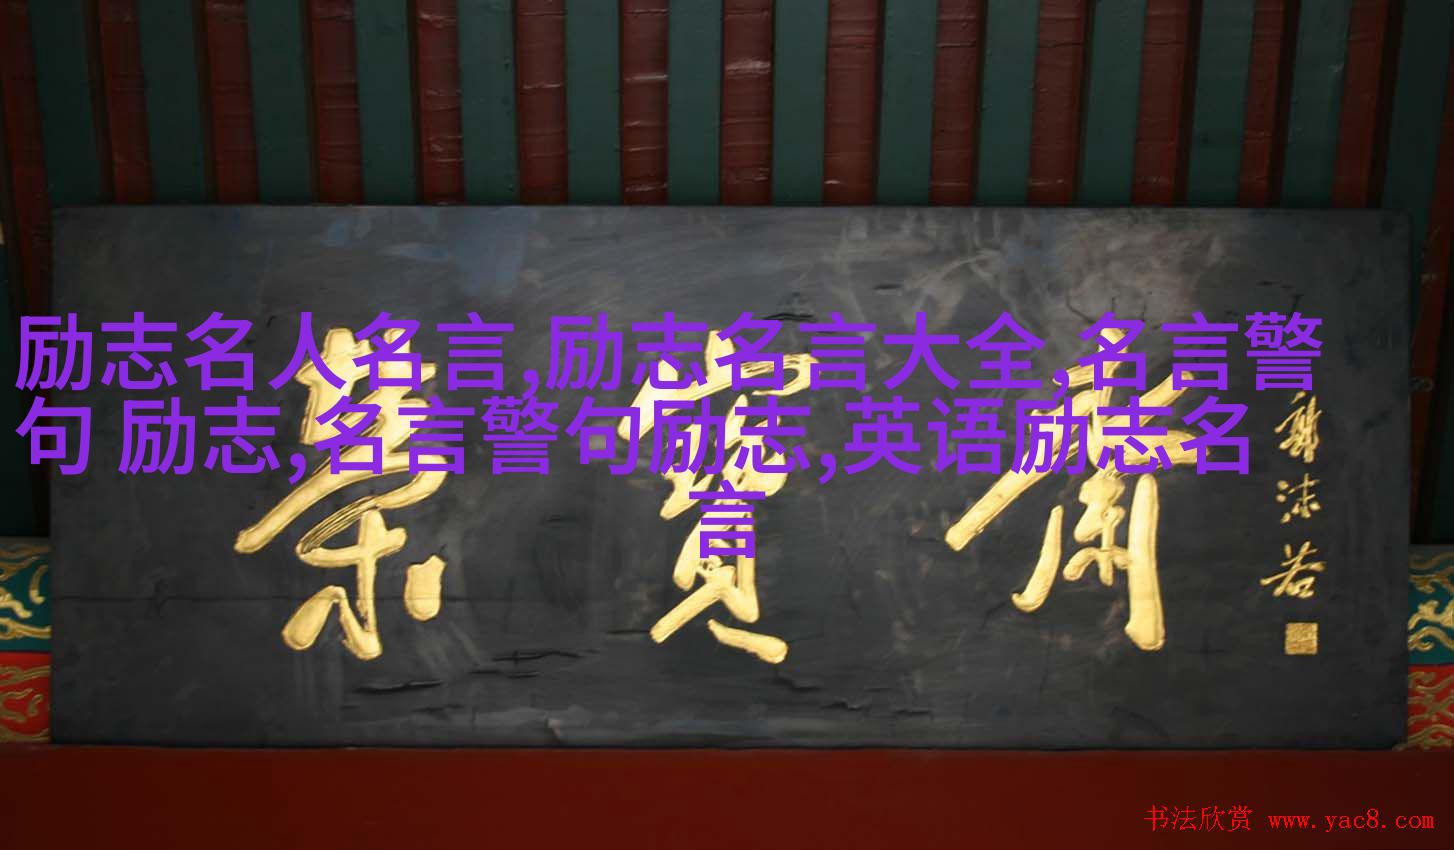 励志名人名言,励志名言大全,名言警
句 励志,名言警句励志,英语励志名
言
榮寶齋
郭沫若
书法欣赏 www.yac8.com